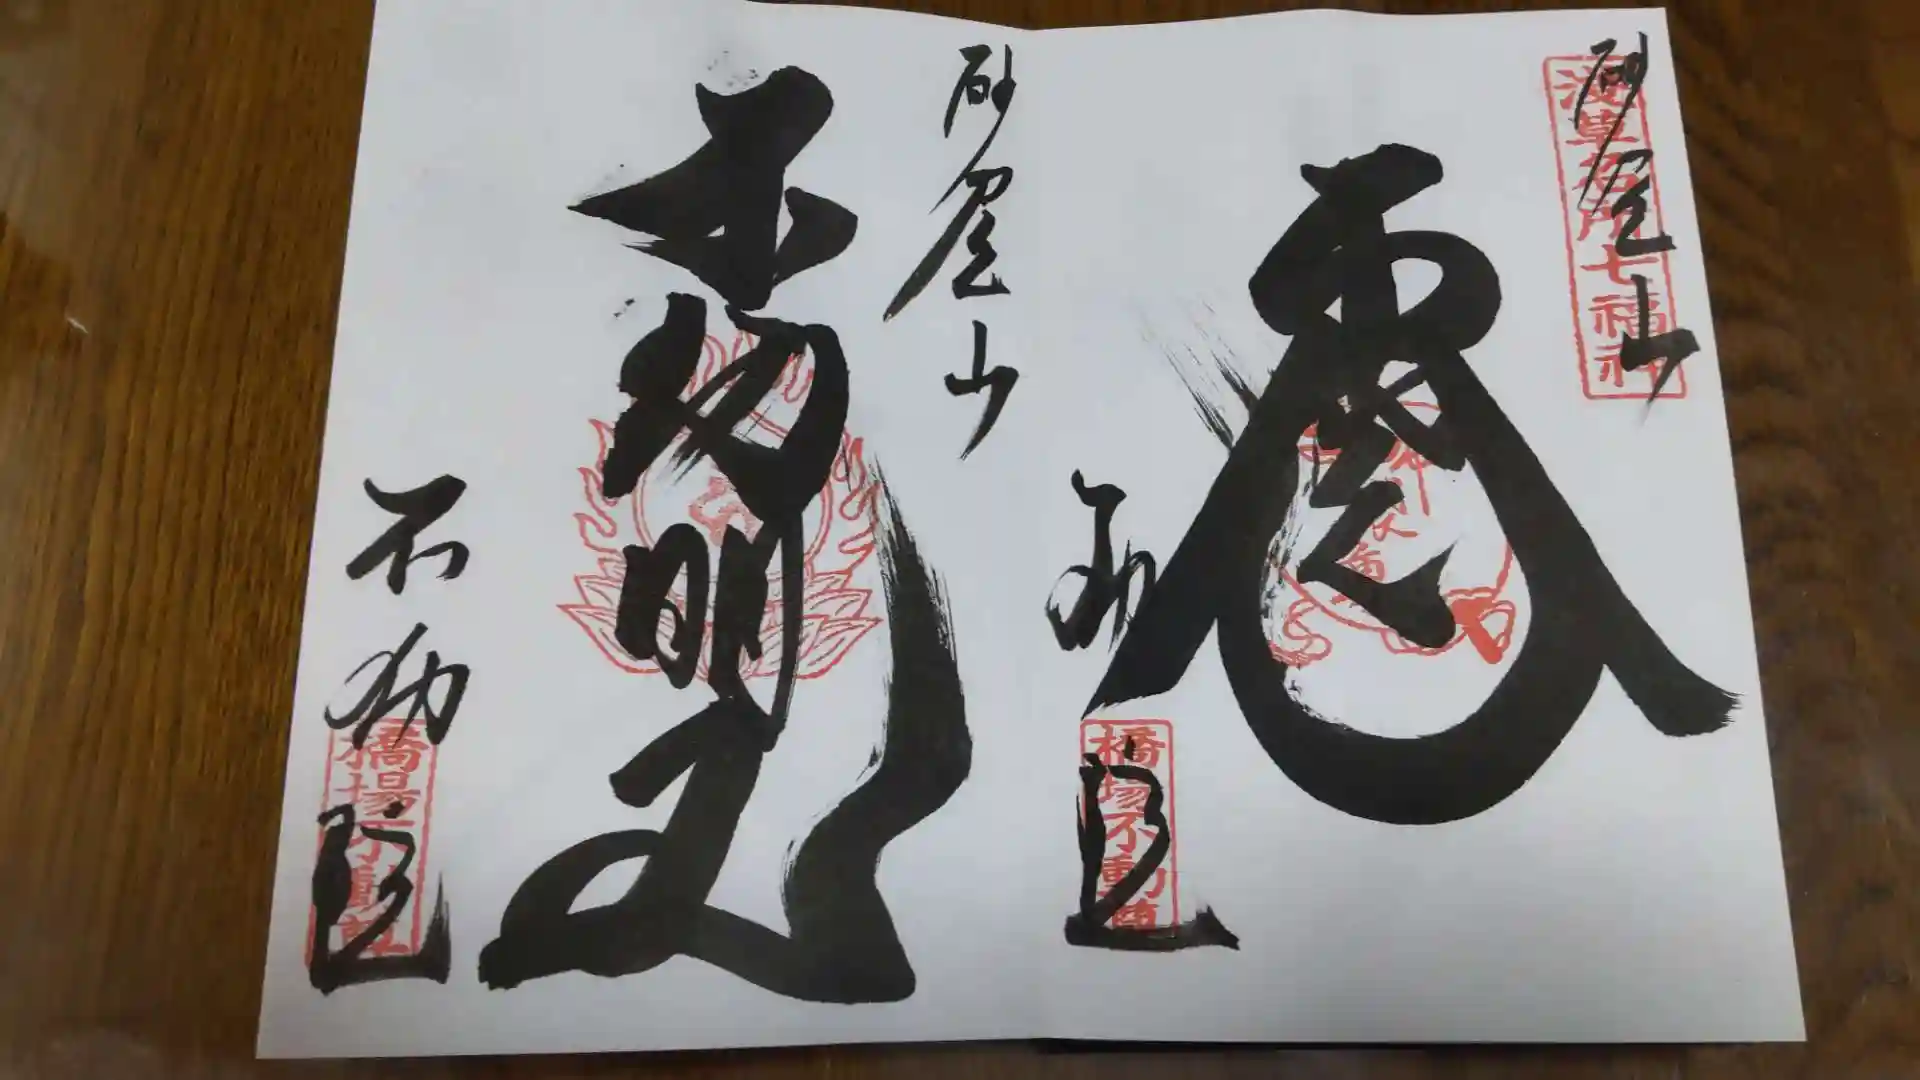 砂尾山
浅草名所七福神
布袋
不動院
橋場不動尊
砂尾山
不動明王
不動院
橋場不動尊